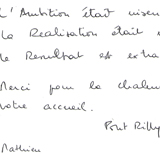 L'Ambition était
La Réalisation était
Le Résultat est extra
Merci pour la chaleur
votre accueil.
Pont Rilly
Mathieu